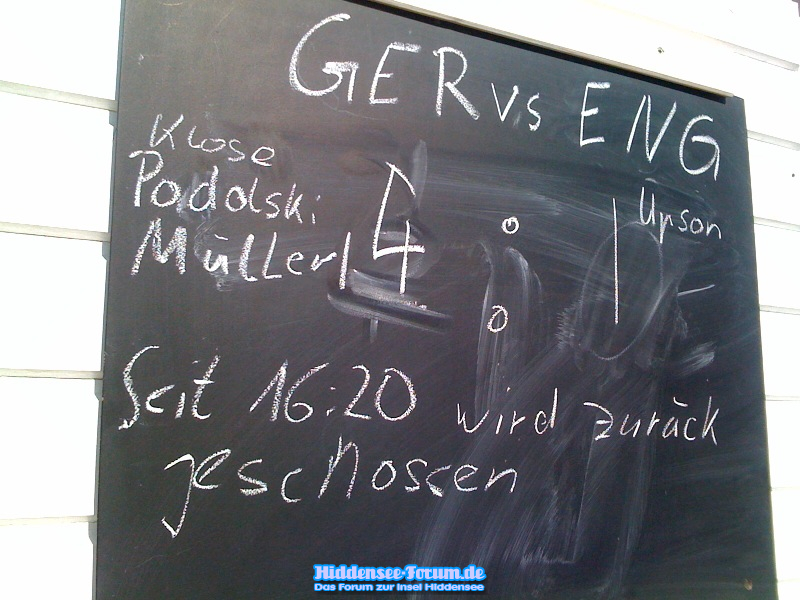 GER vs ENG
Klose
Podolski
Müller 4 : 1 Upson
Seit 16:20 wird zurück
geschossen
Hiddensee-Forum.de
Das Forum zur Insel Hiddensee